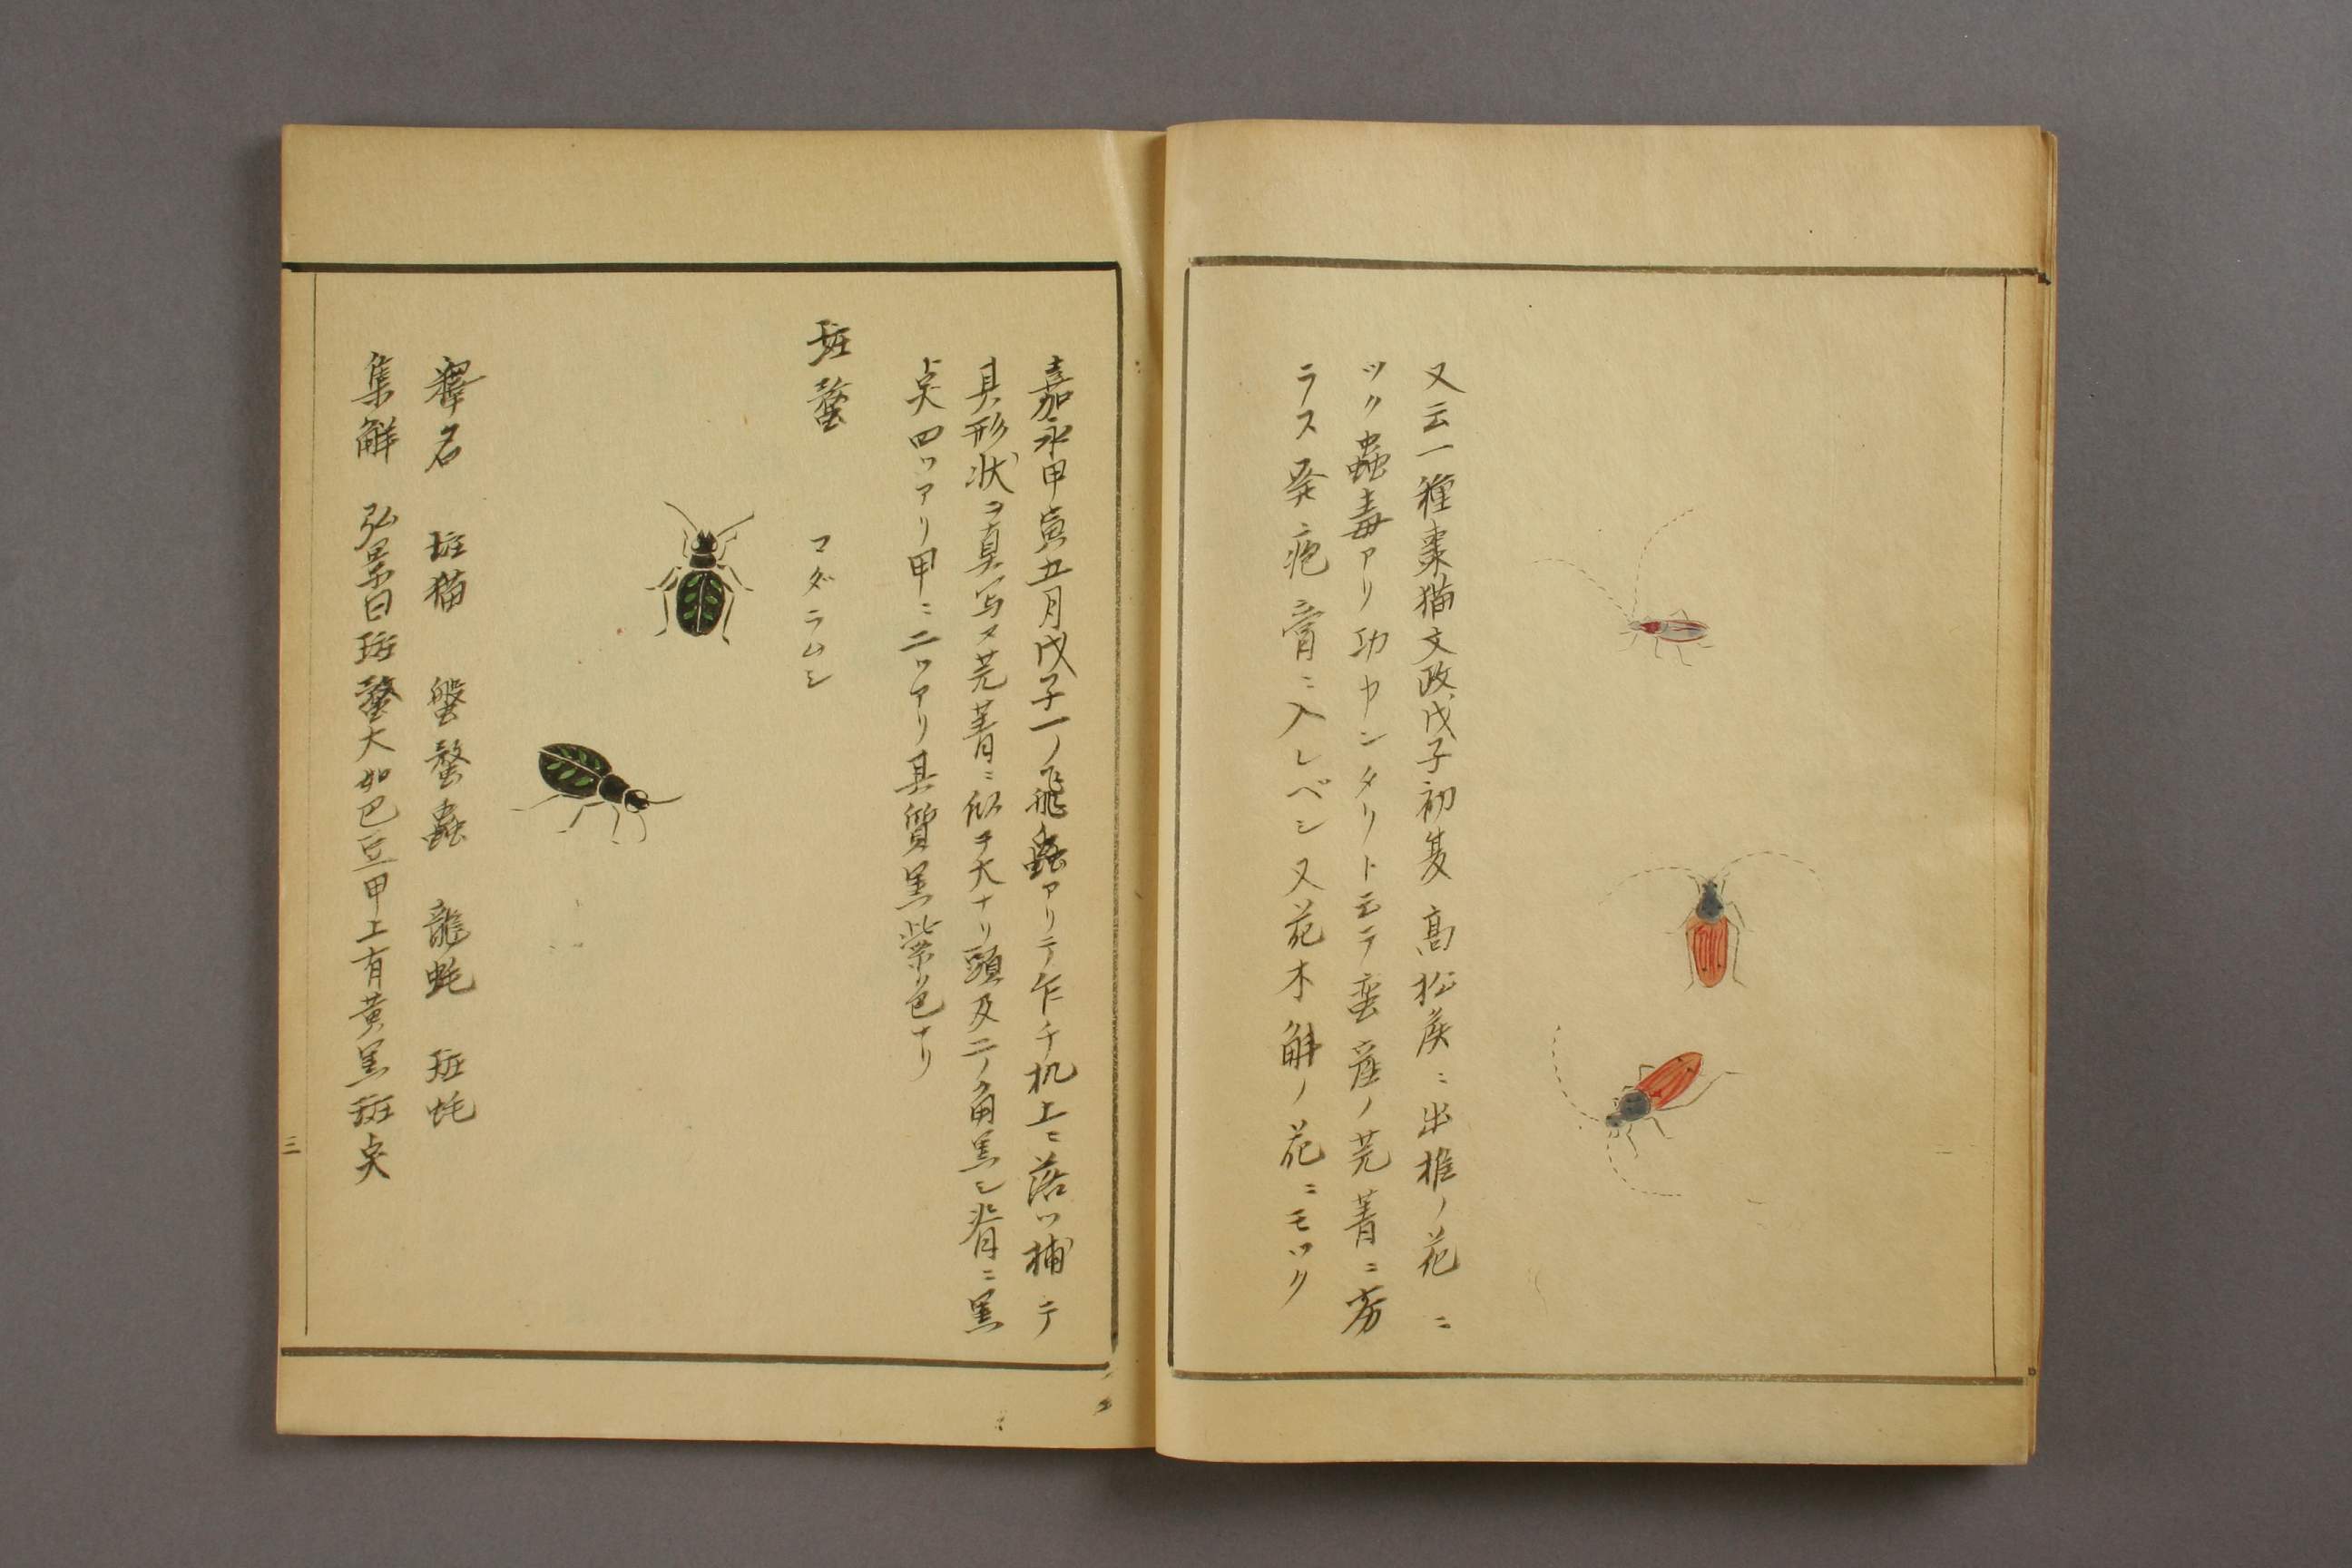 又云一種棗猫文政戊子初夏髙松矦ニ出椎ノ花ニ
ツク蟲毒アリ功カンタリトモラ蛮産ノ芫菁ニ劣
ラス発疱膏ニ入レベシ又花木斛ノ花ニモツク
嘉永甲寅五月戊子一ノ飛蟲アリテ乍チ机上ニ落ツ捕テ
其形状ヲ真写ス芫菁ニ似テ大ナリ頭及二ノ角黒シ背ニ黒
点四ツアリ甲ニ二ツアリ其質黒紫色ナリ
斑蝥 マダラムシ
釋名 斑猫 螌蝥蟲 龍蚝 斑蚝
集解 弘景曰斑蝥大如巴豆甲上有黄黒斑点
三